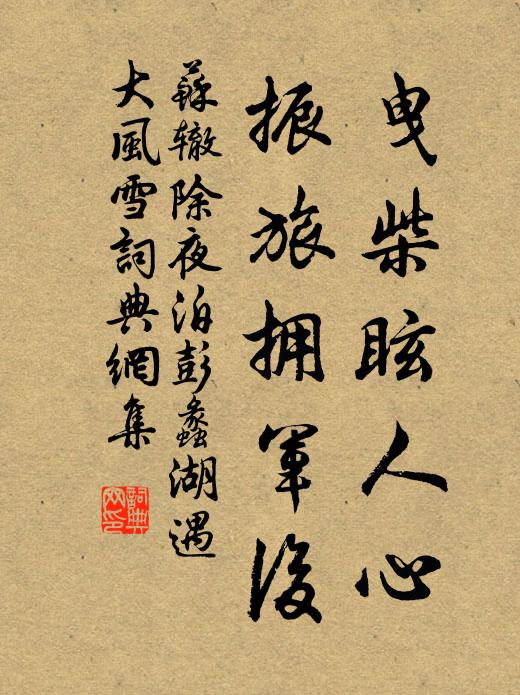 曳柴眩人心
振旅拥軍後
蘇辙除夜泊彭蠡湖遇
大風雪詞典網集
詞典
网印